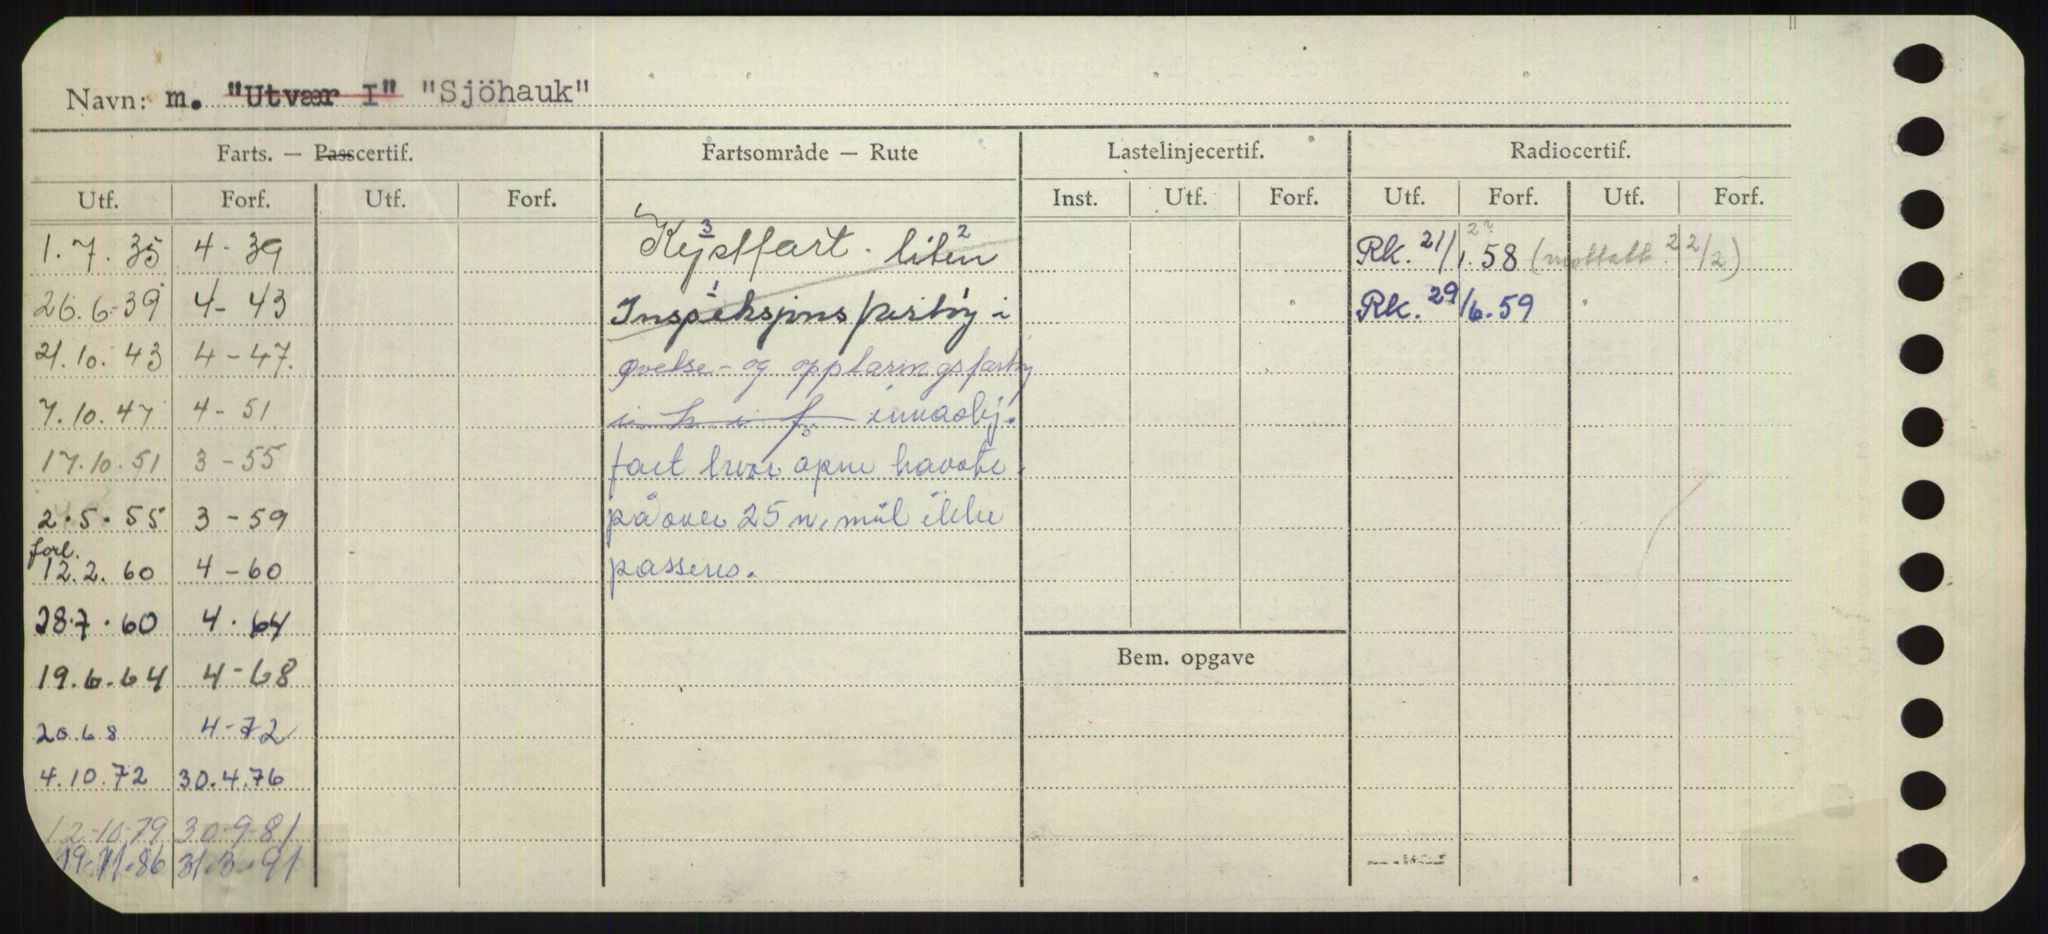 Navn: m. "Utvær I" "Sjöhauk"
Farts. — Passcertif. Fartsområde — Rute Lastelinjecertif. Radiocertif.
Utf. Forf. Utf. Forf. Inst. Utf. Forf. Utf. Forf. Utf. Forf.
1.7.35 4-39 Kystfart. liten Rk. 21/1.58 (mottatt 22/2)
26.6-39 4-43 Inspeksjons fartøy i Rk. 29/6.59
21.10.43 4-47. øvelse- og opplæringsfartøy
7.10.47 4-51
17.10.51 3-55 fart hvor åpne
2.5.55 3-59 på over 25 n. mil ikke
forl.
12.2.60 4-60 passeres.
28.7.60 4.64
19.6.64 4-68
Bem. opgave
20 68 4-72
4.10.72 30.4.76
12-10-79 30-9-81
19.11.86 31.3.91